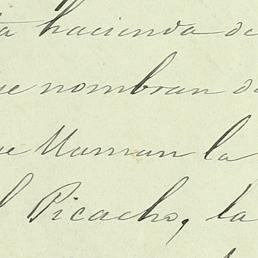 ta hacienda de
ue nombran de
ue llaman la
l Picacho, la